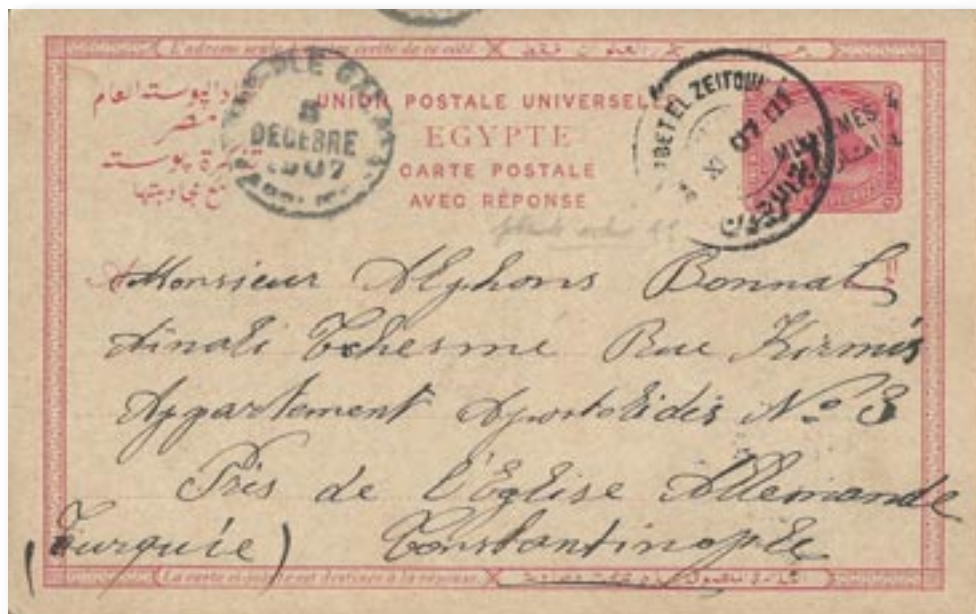 L'adresse seule doit être écrite de ce côté.
UNION POSTALE UNIVERSELLE
EGYPTE
CARTE POSTALE
AVEC RÉPONSE
مصر
تذكرة بوسته
8
DECEBRE
1907
BET EL ZEITOUN
XI 07
MILLIEMES
4
Monsieur Alphons Bonnal
Ainali Tchesmé Rue Kirmés
Appartement Apostolidis No 3
Près de l'Eglise Allemande
(Turquie) Constantinople
La carte ci-jointe est destinée à la réponse.